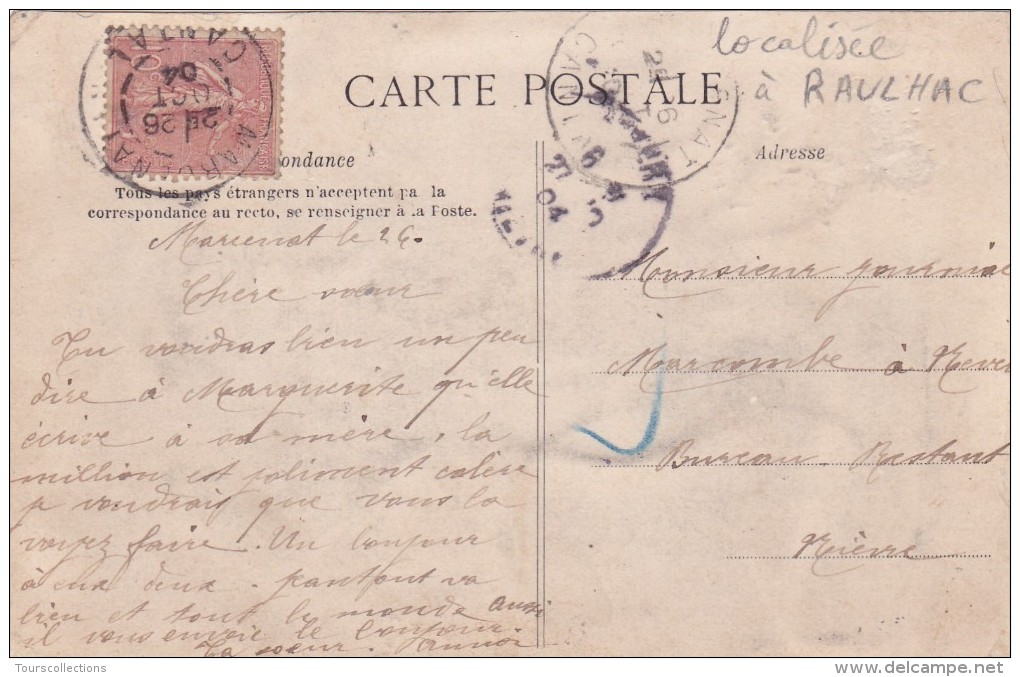 localisée
à RAULHAC
CARTE POSTALE
MARCENAT
CANTAL
25 26
OCT
04
ondance
Adresse
Tous les pays étrangers n'acceptent pa la
correspondance au recto, se renseigner à la Poste.
Marcenat le 26.
Chère sœur
Tu voudras bien un peu
dire à Marguerite qu'elle
écrive à sa mère, la
million est joliment colère
je voudrais que vous la
voyez faire. Un bonjour
à eux deux. partout va
bien et tout le monde aussi
il vous envoie le bonjour.
Ta soeur.
Monsieur
Marcombe à Never
Bureau Restant
Nièvre
Tourscollections
delcampe.net